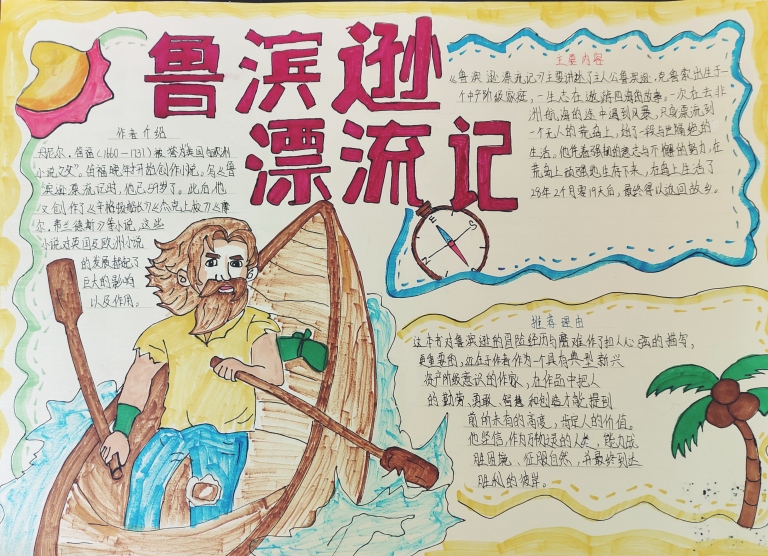 鲁滨逊
漂流记
作者介绍
丹尼尔·笛福(1660-1731)被誉为英国与欧洲
小说之父”。笛福晚年才开始创作小说,名《鲁
滨逊漂流记时,他已59岁了。此后他
又创作了《辛格顿船长》《杰克上校》《摩
尔·弗兰德斯》等小说,这些
小说对英国及欧洲小说
的发展都起了
巨大的影响
以及作用。
主要内容
《鲁滨逊漂流记》主要讲述了主人公鲁滨逊·克鲁索出生于一
个中产阶级家庭,一生志在遨游四海的故事。一次在去非
洲航海的途中遇到风暴,只身漂流到
一个无人的荒岛上,开始了一段与世隔绝的
生活。他凭着强韧的意志与不懈的努力,在
荒岛上顽强地生存下来,在岛上生活了
28年2月零19天后,最终得以返回故乡。
E
S
推荐理由
这本书对鲁滨逊的冒险经历与磨难作了扣人心弦的描写,
更重要的,还在于作者作为一个具有典型新兴
资产阶级意识的作家,在作品中把人
的勤劳、勇敢、智慧和创造才能提到
前所未有的高度,肯定人的价值。
他坚信,作为万物之灵的人类,能力战
胜困境,征服自然,并最终到达
胜利的彼岸。